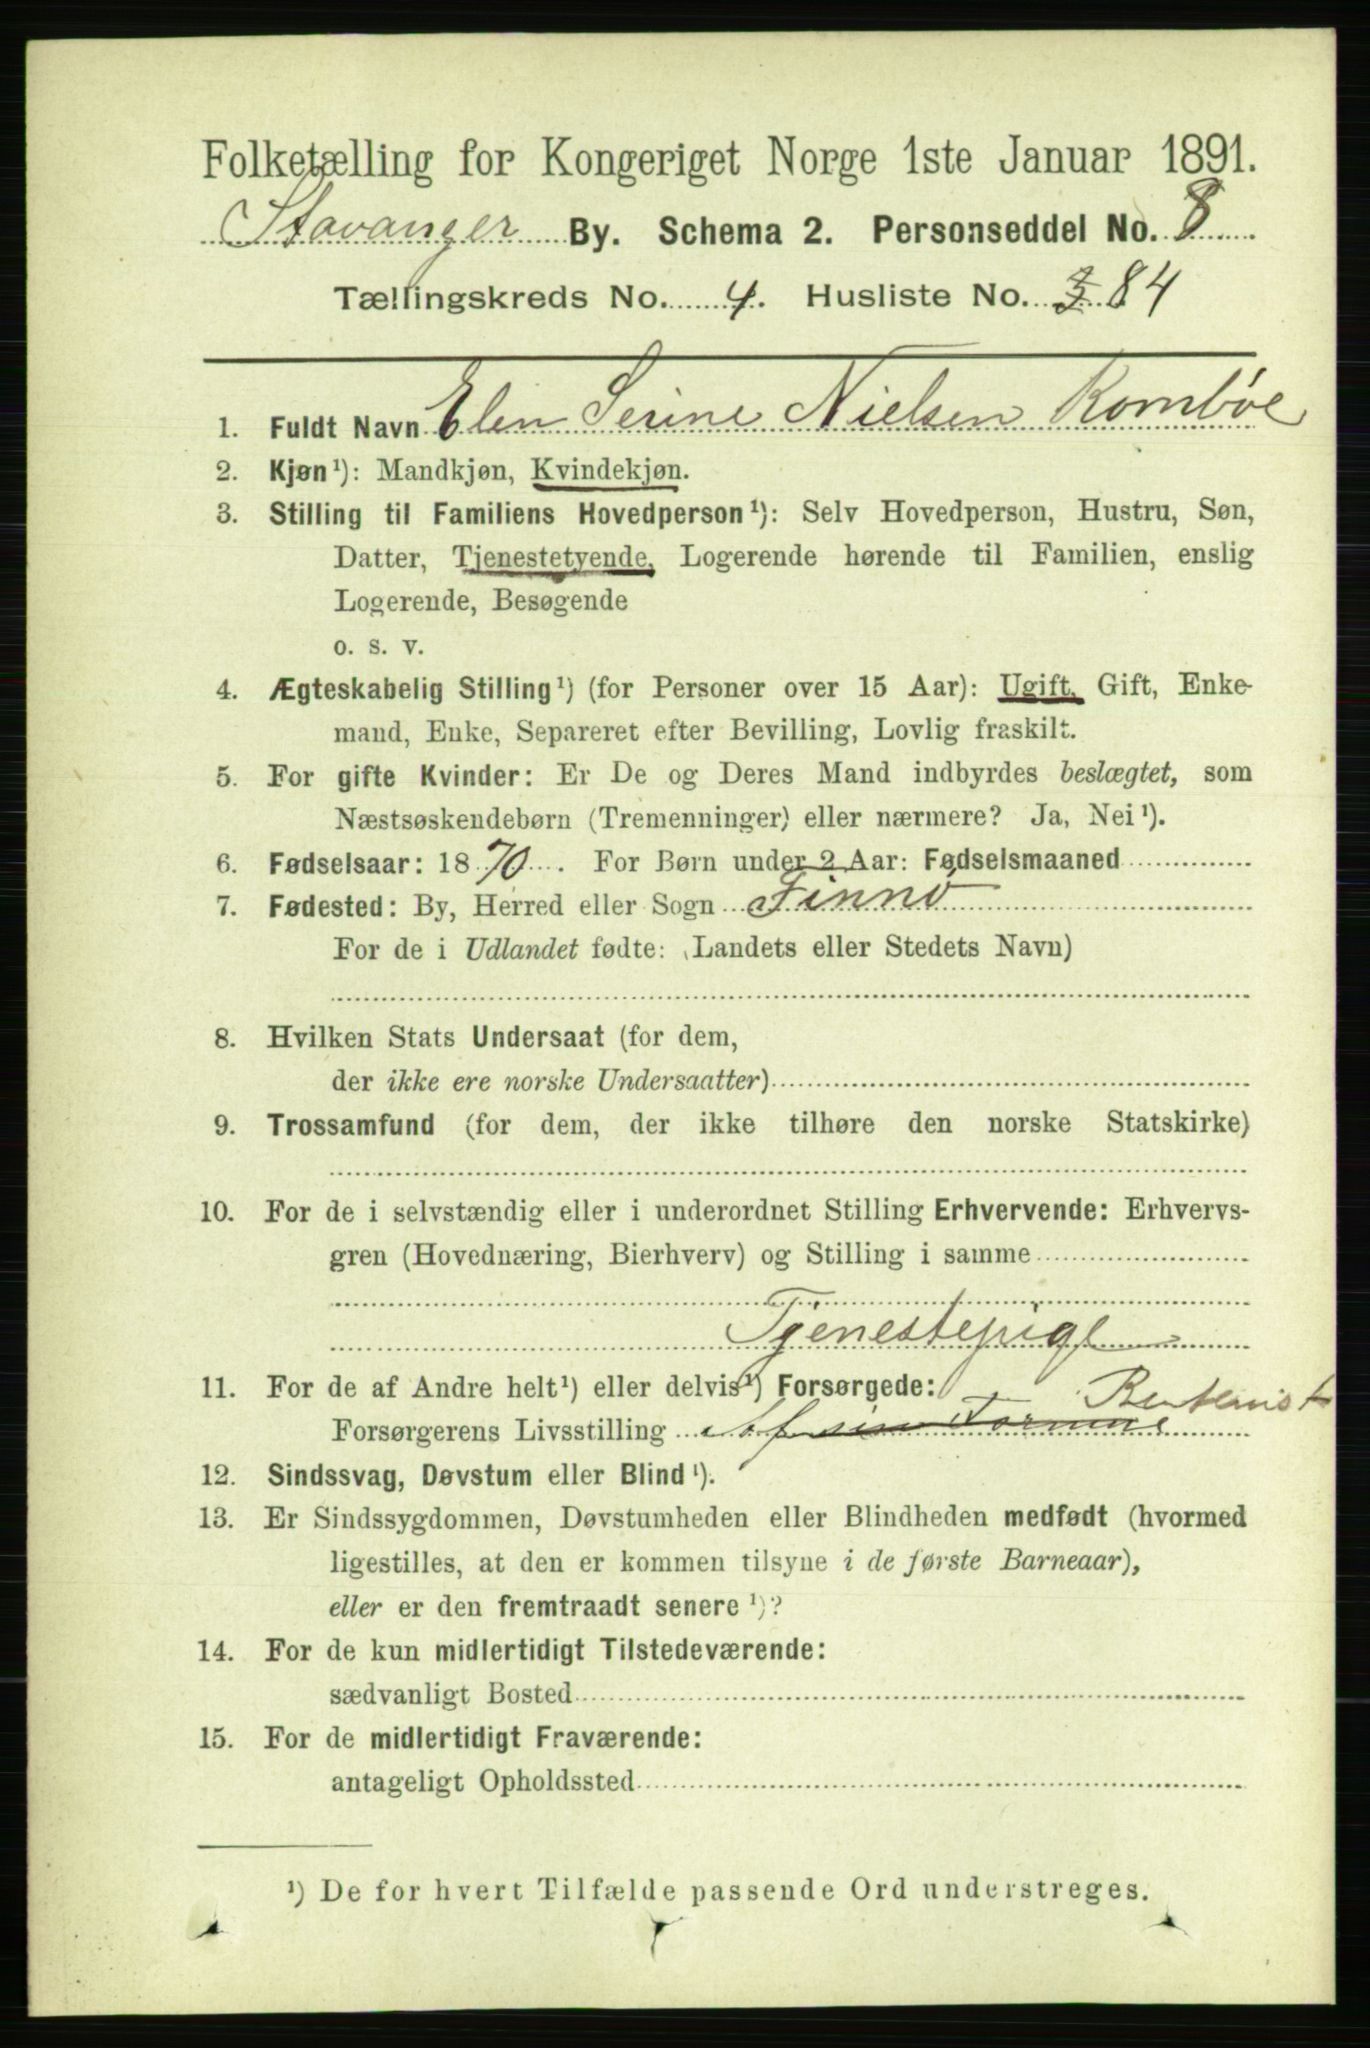 Folketælling for Kongeriget Norge 1ste Januar 1891.
Stavanger By. Schema 2. Personseddel No. 8
Tællingskreds No. 4. Husliste No. 3 84
1. Fuldt Navn Elen Serine Nielsen Rombøe
2. Kjøn¹): Mandkjøn, Kvindekjøn.
3. Stilling til Familiens Hovedperson¹): Selv Hovedperson, Hustru, Søn,
Datter, Tjenestetyende, Logerende hørende til Familien, enslig
Logerende, Besøgende
o. s. v.
4. Ægteskabelig Stilling¹) (for Personer over 15 Aar): Ugift, Gift, Enke-
mand, Enke, Separeret efter Bevilling, Lovlig fraskilt.
5. For gifte Kvinder: Er De og Deres Mand indbyrdes beslægtet, som
Næstsøskendebørn (Tremenninger) eller nærmere? Ja, Nei¹).
6. Fødselsaar: 1870. For Børn under 2 Aar: Fødselsmaaned
7. Fødested: By, Herred eller Sogn Finnö
For de i Udlandet fødte: (Landets eller Stedets Navn)
8. Hvilken Stats Undersaat (for dem,
der ikke ere norske Undersaatter)
9. Trossamfund (for dem, der ikke tilhøre den norske Statskirke)
10. For de i selvstændig eller i underordnet Stilling Erhvervende: Erhvervs-
gren (Hovednæring, Bierhverv) og Stilling i samme
Tjenestepige
11. For de af Andre helt¹) eller delvis¹) Forsørgede:
Rentenist
Forsørgerens Livsstilling Af sin Formue
12. Sindssvag, Døvstum eller Blind¹).
13. Er Sindssygdommen, Døvstumheden eller Blindheden medfødt (hvormed
ligestilles, at den er kommen tilsyne i de første Barneaar),
eller er den fremtraadt senere¹)?
14. For de kun midlertidigt Tilstedeværende:
sædvanligt Bosted
15. For de midlertidigt Fraværende:
antageligt Opholdssted
¹) De for hvert Tilfælde passende Ord understreges.